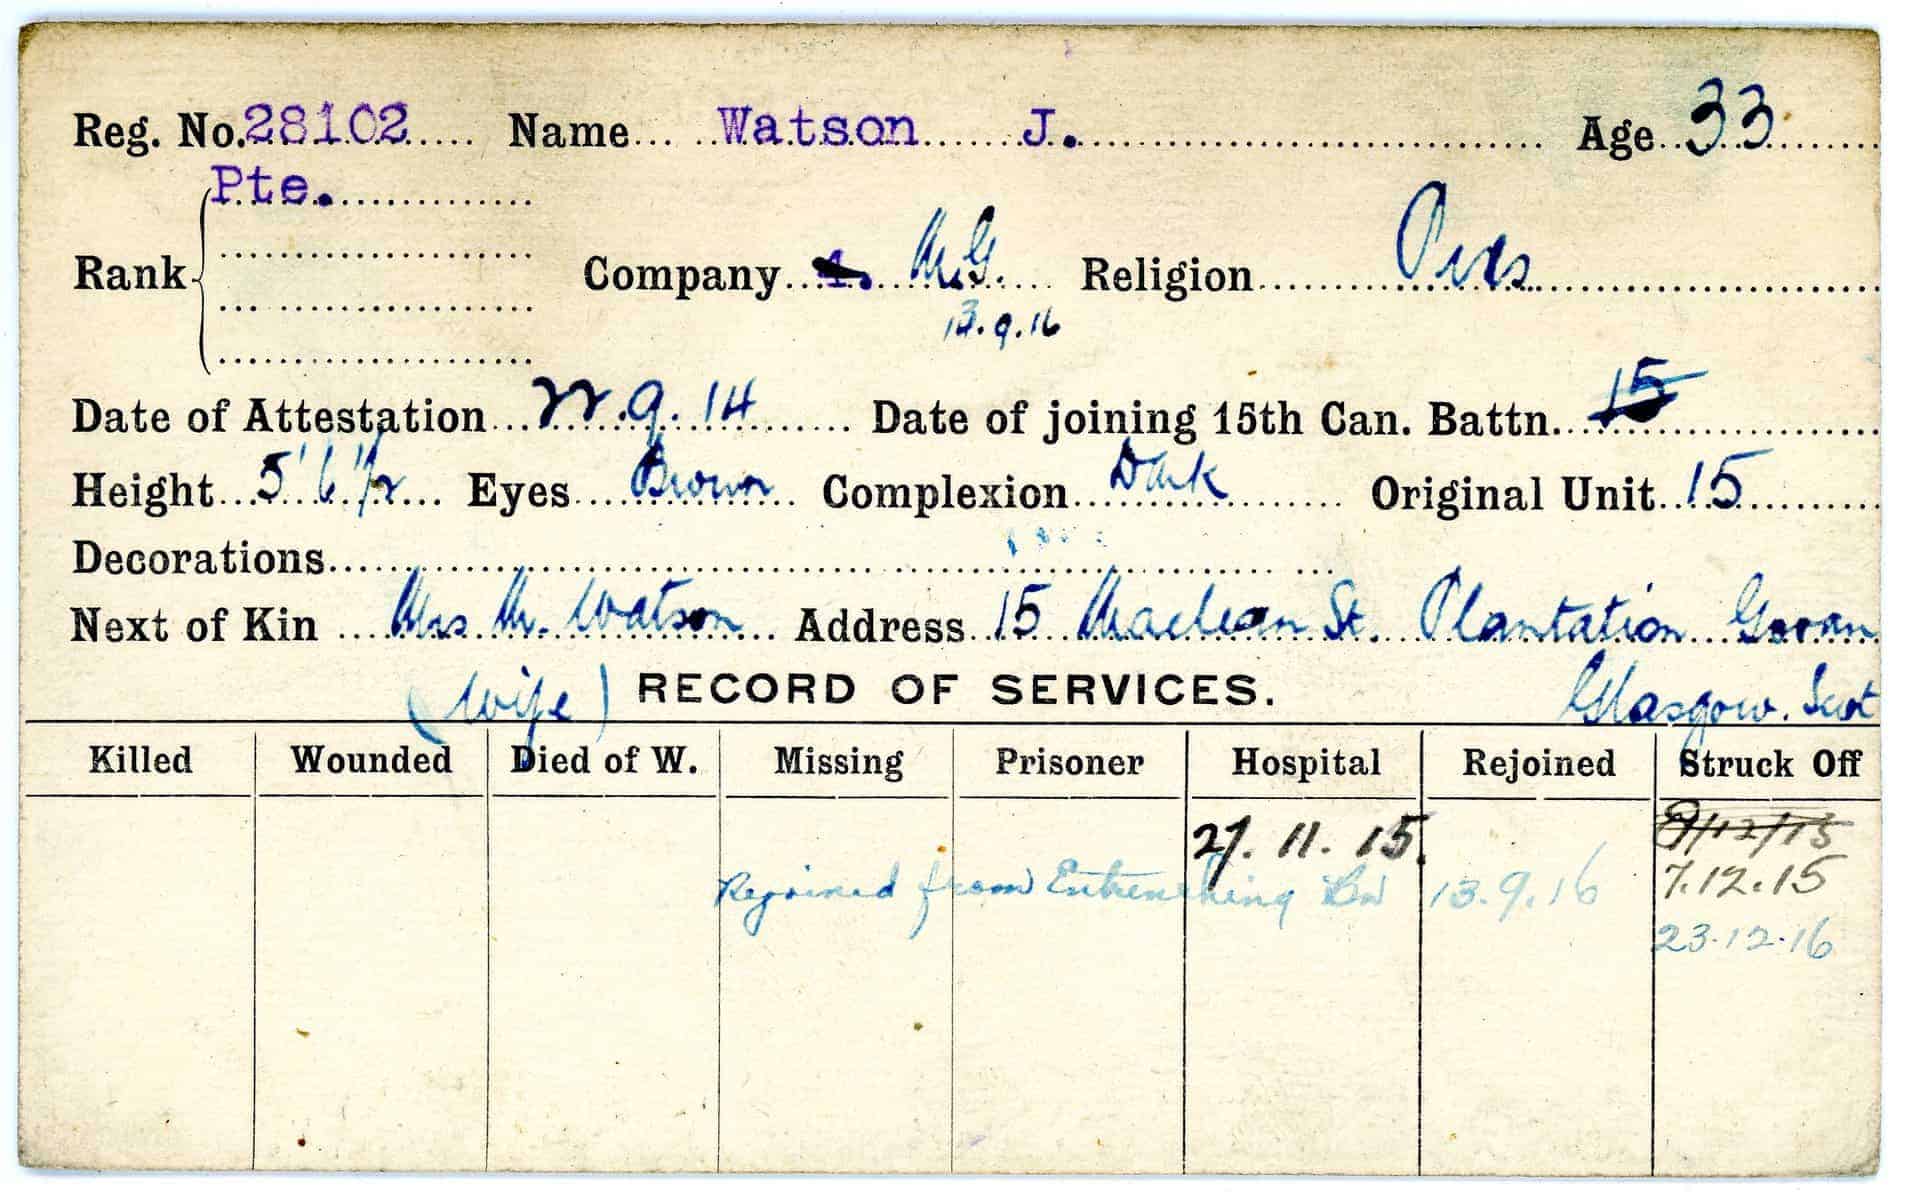 Reg. No. 28102 Name Watson J. Age 33
Pte.
Rank Company M.G. Religion Pres
13.9.16
Date of Attestation 22.9.14 Date of joining 15th Can. Battn. 15
Height 5'6 1/2 Eyes Brown Complexion Dark Original Unit 15
Decorations
Next of Kin Mrs. M. Watson Address 15 Maclean St. Plantation Govan
(Wife) RECORD OF SERVICES. Glasgow. Scot
Killed Wounded Died of W. Missing Prisoner Hospital Rejoined Struck Off
27.11.15. 9/12/15
7.12.15
Rejoined from Entrenching Bn 13.9.16
23.12.16